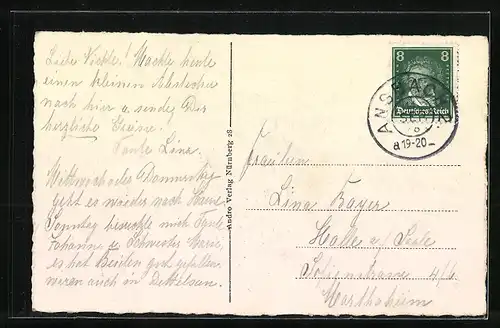 Liebe Nichte! Machte heute
einen kleinen Abstecher
nach hier u. sendig Dir
herzliche Grüsse.
Tante Lina.
Mittwoch oder Donnerstag
geht es wieder nach Hause
Sonntag besuchte mich Tante
Johanna u. Schwester Marie,
es hat Beiden gut gefallen
waren auch in Dettelsau.
Andro Verlag Nürnberg 28
8 8
Deutsches Reich
ANSBACH
a 19-20
Fräulein
Lina Bayer
Halle a/ Saale
Sofienstrasse 4/6
Marthaheim